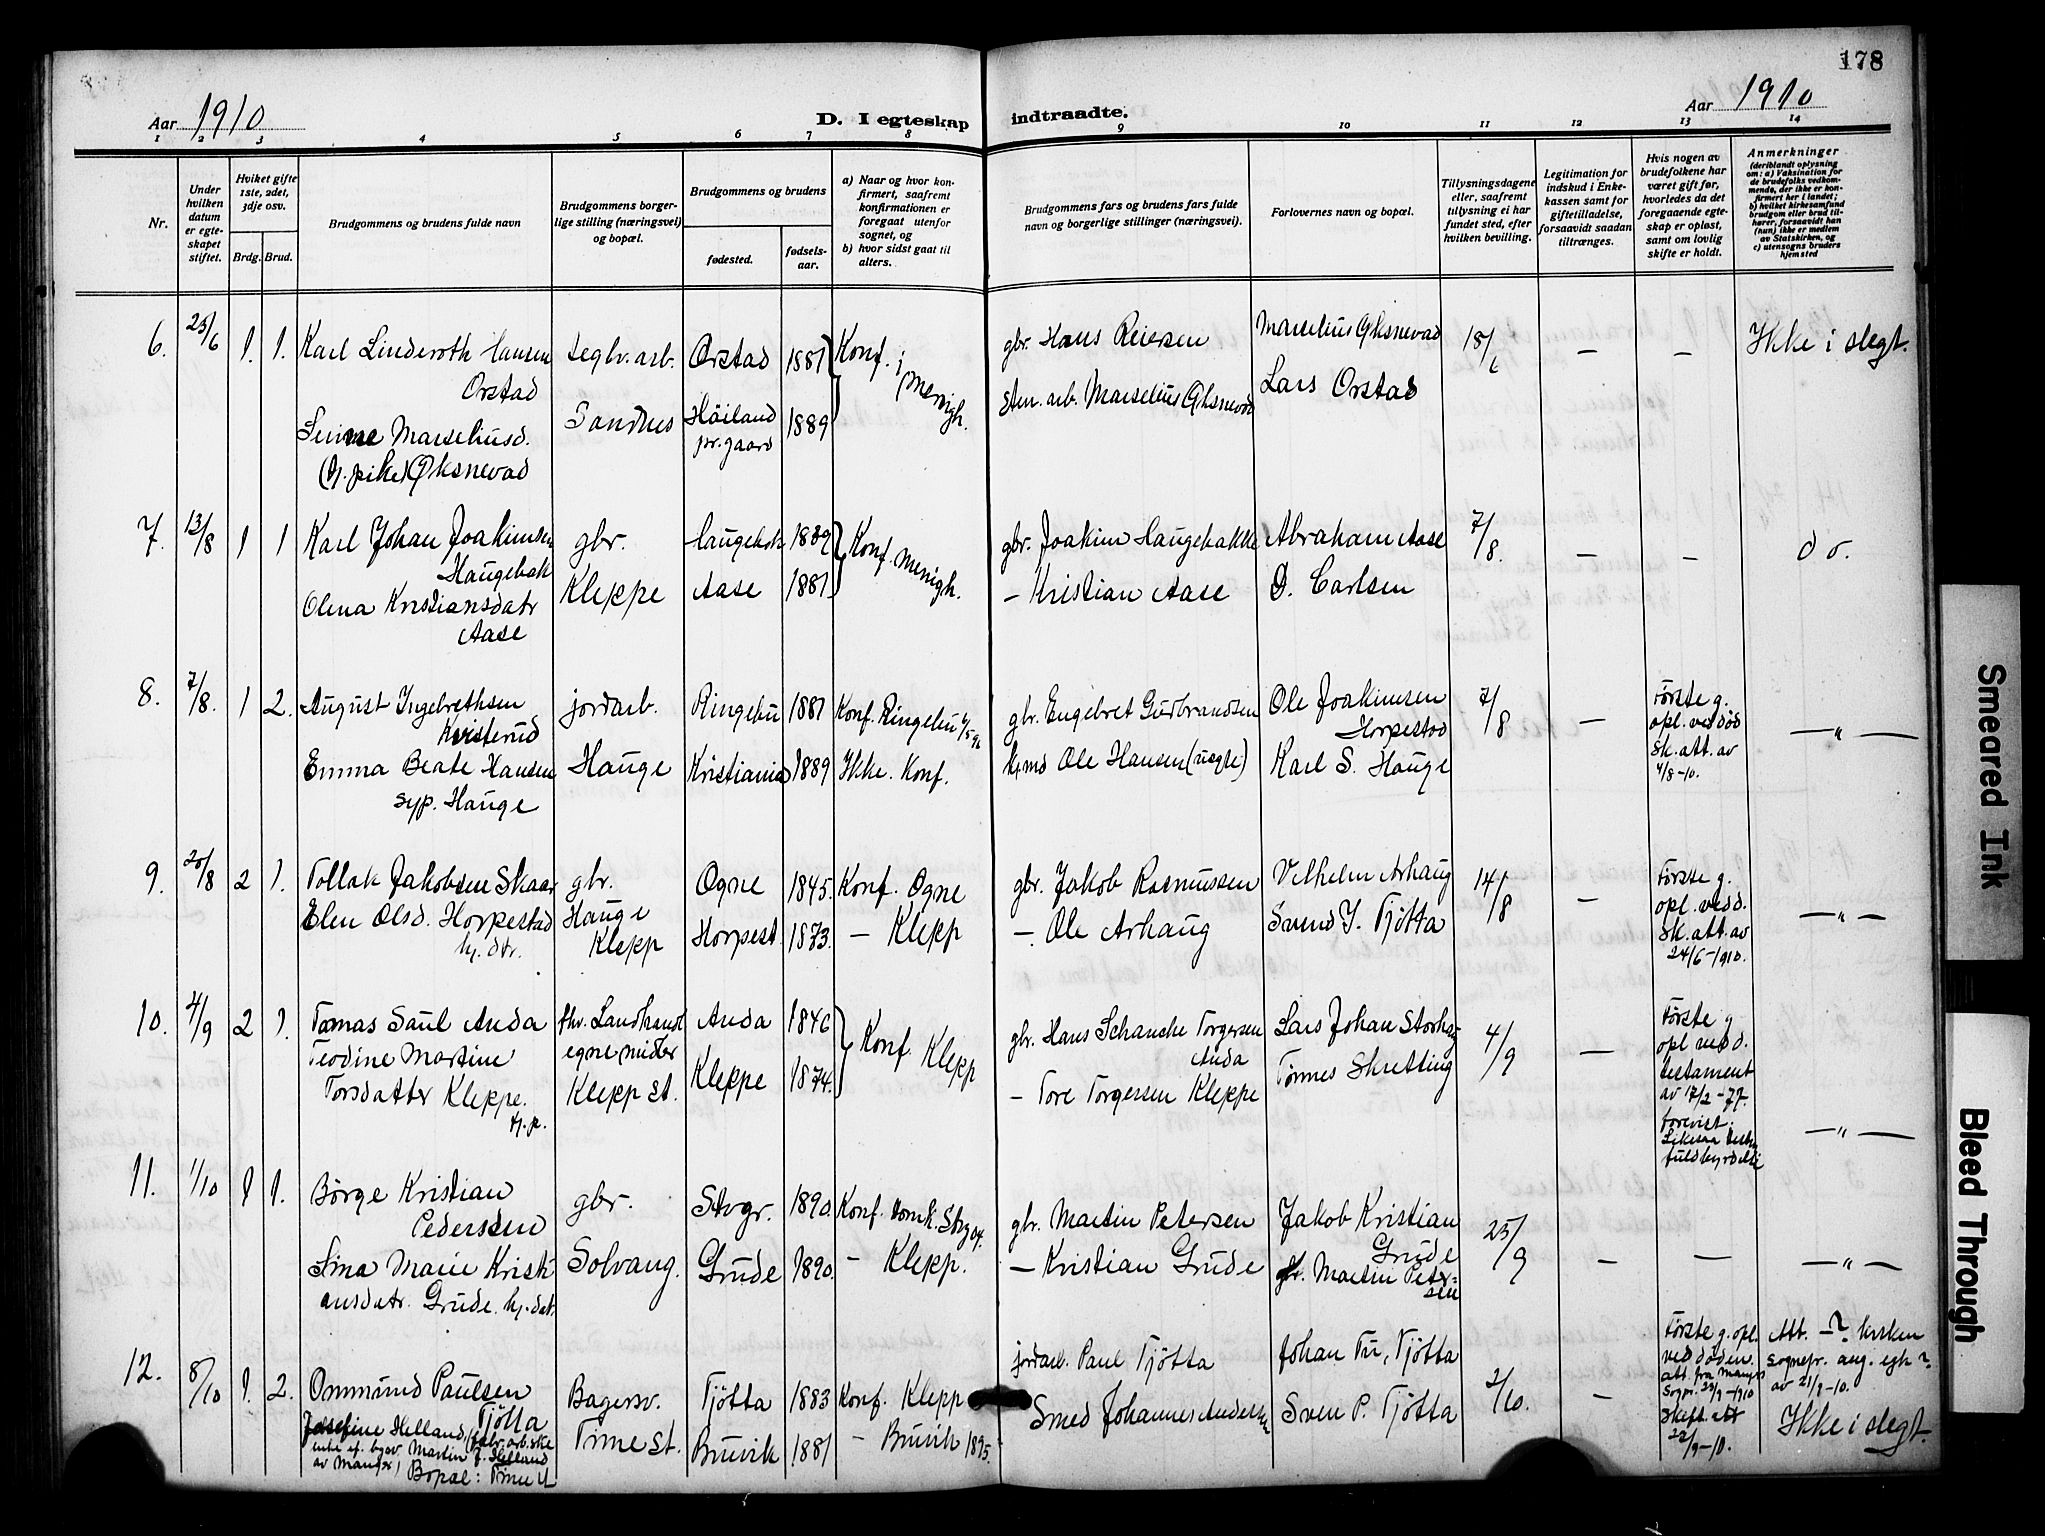 178
Aar 1910
D. I egteskap indtraadte.
Aar 1910
1 2 3 4 5 6 7 8 9 10 11 12 13 14
Nr.
Under hvilken datum er egteskapet stiftet.
Hviket gifte 1ste, 2det, 3dje osv.
Brdg. Brud.
Brudgommens og brudens fulde navn
Brudgommens borgerlige stilling (næringsvei) og bopæl.
Brudgommens og brudens
fødested.
fødselsaar.
a) Naar og hvor konfirmert, saafremt konfirmationen er foregaat utenfor sognet, og
b) hvor sidst gaat til alters.
Brudgommens fars og brudens fars fulde navn og borgerlige stillinger (næringsvei).
Forlovernes navn og bopæl.
Tillysningsdagene eller, saafremt tillysning ei har fundet sted, efter hvilken bevilling.
Legitimation for indskud i Enkekassen samt for giftetilladelse, forsaavidt saadan tiltrænges.
Hvis nogen av brudefolkene har været gift før, hvorledes da det foregaaende egteskap er opløst, samt om lovlig skifte er holdt.
Anmerkninger
(deriblandt oplysning om: a) Vaksination for de brudefolks vedkommende, der ikke er konfirmert her i landet; b) hvilket kirkesamfund brudgom eller brud tilhører, forsaavidt han (hun) ikke er medlem av Statskirken, og c) utensogns bruders hjemsted
6. 25/6 1. 1. Karl Linderoth Hansen Orstad
teglv.arb. Orstad 1881 Konf. i menigh.
gbr. Hans Reiersen
Marselius Øksnevad
18/6 — — Ikke i slegt.
Marseliusd. (hj. pike) Øksnevad
Sandnes Höiland pr.gaard 1889
sten. arb. Marselius Øksnevad
Lars Orstad
7. 13/8 1 1 Karl Johan Joakimsen Haugebak
gbr. Haugebak 1889 Konf. menigh.
gbr. Joakim Haugebakke
Abraham Aase
7/8. — — do.
Olena Kristiansdatr Aase
Kleppe Aase 1881.
— Kristian Aase
O. Carlsen
8. 7/8. 1 2. August Ingebrethsen Kvisterud
jordarb. Ringebu 1881 Konf. Ringebu
gbr. Engebret Gudbrandsen
Ole Joakimsen Horpestad
7/8 — Første g. opl. ved död Sk. att. av 4/8-10.
— " —
Emma Beate Hansen syp. Hauge
Hauge Kristiania 1889 Ikke. Konf.
Ole Hansen
Karl S. Hauge
9. 20/8 2 1. Tollak Jakobsen Skaar
gbr. Ogne 1845. Konf. Ogne
gbr. Jakob Rasmussen
Vilhelm Arhaug
14/8 — Første g. opl. ved d. Sk. att. av 24/6-1910.
— " —
Elen Olsd. Horpestad hj. dtr.
Hauge Klepp Horpest. 1873. — Klepp
— Ole Arhaug
Svend J. Tjötta
10. 4/9 2 1. Tomas Saul Anda
fhv. Landhandl egne midler Anda 1846 Konf. Klepp
gbr. Hans Schanche Torgersen Anda
Lars Johan Storhg
4/9 — Første g opl ved d. testament av 17/2-77. forevist.
— " —
Teodine Martine Torsdatter Kleppe. hj. p.
Klepp st. Kleppe 1874.
— Tore Torgersen Kleppe
Tönnes Skretting
11. 1/10 1 1. Börge Kristian Pederssen
gbr. Stvgr. 1890. Konf. Domk. Stvg 04.
gbr. Martin Petersen
Jakob Kristian Grude
25/9 — — — " —
Sina Marie Kristiansdatr. Grude. hj. dat.
Solvang. Grude 1890. — Klepp.
— Kristian Grude
gbr. Martin Petersen
12. 8/10 1. 2. Ommund Paulsen Tjötta
Bagersv. Tjötta 1883 Konf. Klepp
jordarb. Paul Tjötta
Johan Tr. Tjötta
2/10. — Første g. opl. ved döden. att. fra Manger Sogpr. 23/9-1910 Skift. att 22/9-10.
Att. sognepr. av 21/9-10.
Ikke i slegt.
Josefine Helland, av Manger) Bopæl: Time st
Time st. Bruvik 1881 — Bruvik 1895.
Smed Johannes Andersen
Sven P. Tjötta
Smeared Ink
Bleed Through